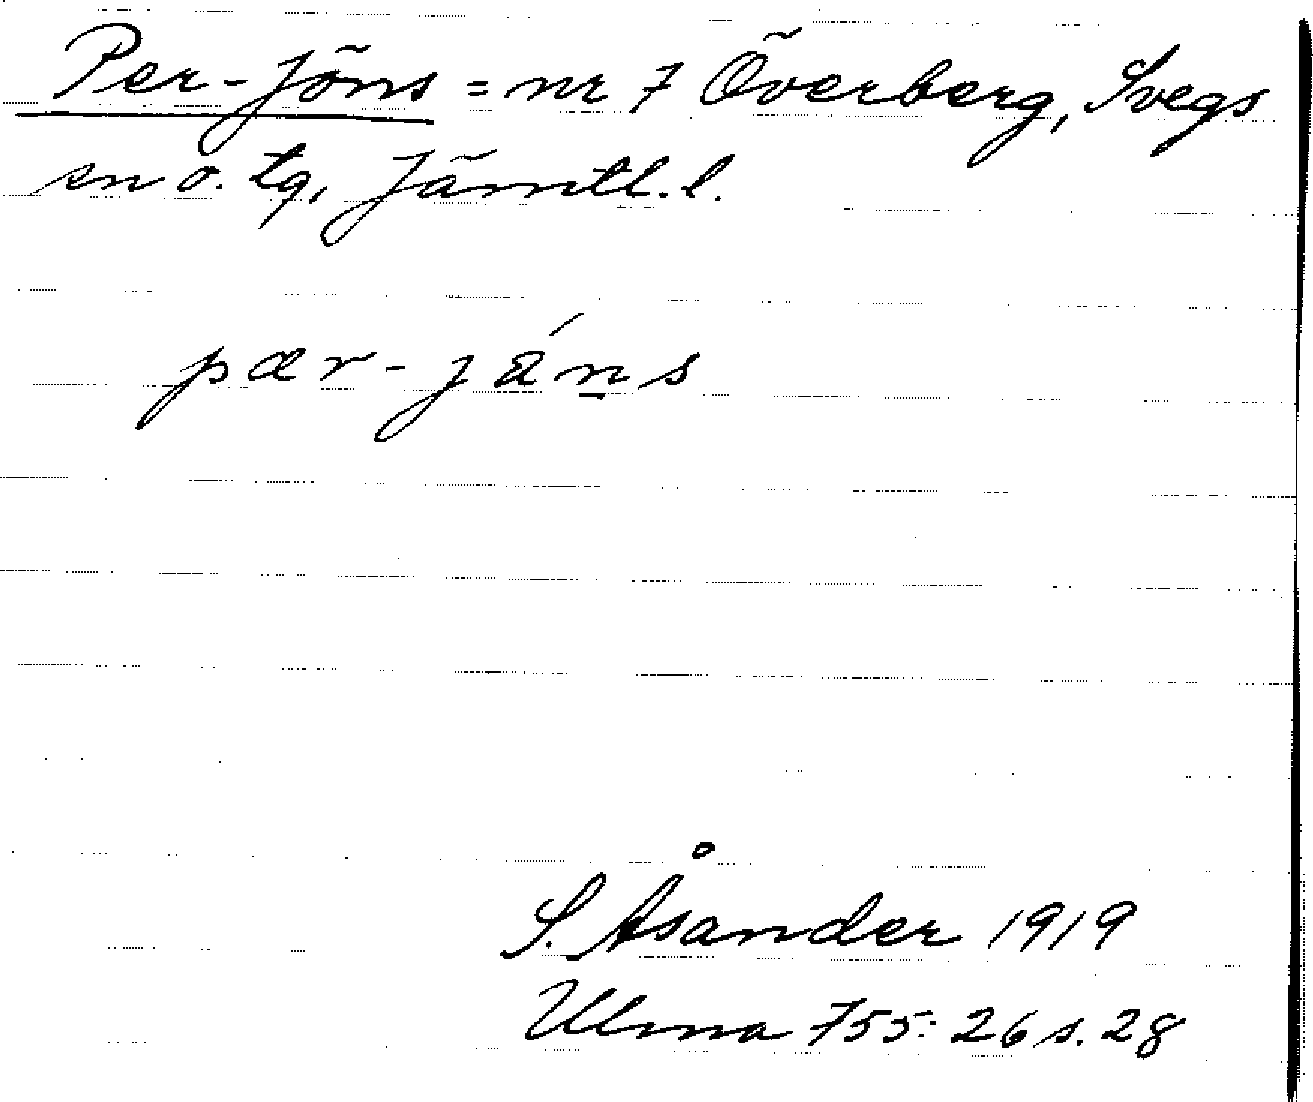 Per-Jöns = nr 7 Överberg, Svegs
sn o. tg, Jämtl. l.
pær-já̈ns
S. Åsander 1919
Ulma 755: 26 s. 28